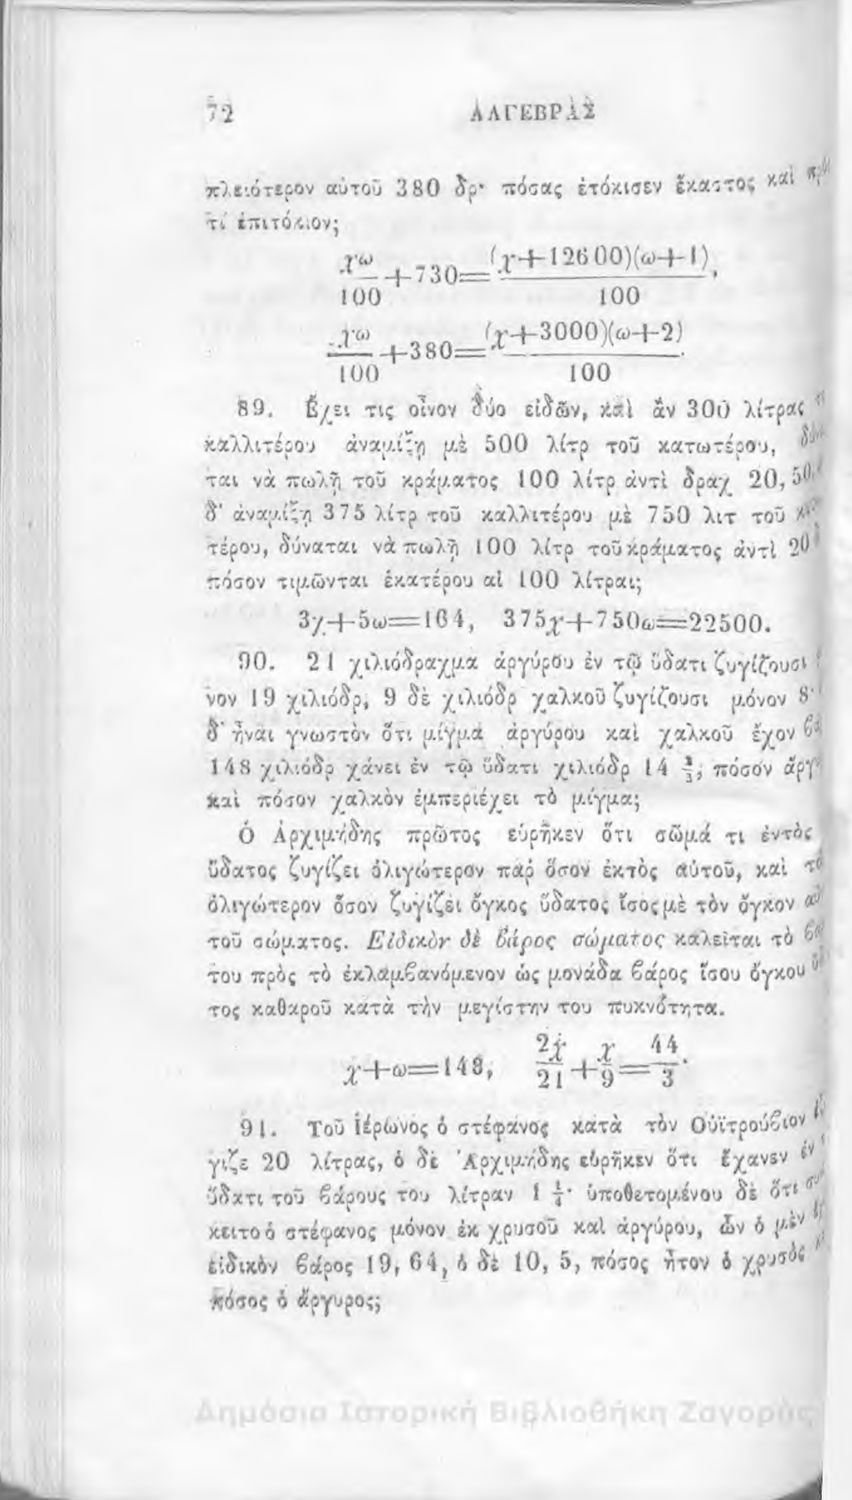 72 ΑΛΓΕΒΡΑΣ
πλειότερον αὐτοῦ 380 δρ· πόσας ἐτόκισεν ἕκαστος καὶ
τί ἐπιτόκιον;
χω/100 +730= (χ+12600)(ω+1)/100 ,
χω/100 +380= (χ+3000)(ω+2)/100 .
89. Ἔχει τις οἶνον δύο εἰδῶν, καὶ ἂν 300 λίτρας
καλλιτέρου ἀναμίξῃ μὲ 500 λίτρ τοῦ κατωτέρου,
ται νὰ πωλῇ τοῦ κράματος 100 λίτρ ἀντὶ δραχ 20, 50,
δ' ἀναμίξῃ 375 λίτρ τοῦ καλλιτέρου μὲ 750 λιτ τοῦ
τέρου, δύναται νὰ πωλῇ 100 λίτρ τοῦ κράματος ἀντὶ 20
πόσον τιμῶνται ἑκατέρου αἱ 100 λίτραι;
3χ+5ω=164, 375χ+750ω=22500.
90. 21 χιλιόδραχμα ἀργύρου ἐν τῷ ὕδατι ζυγίζουσι
νον 19 χιλιόδρ, 9 δὲ χιλιόδρ χαλκοῦ ζυγίζουσι μόνον 8·
δ' ἦναι γνωστὸν ὅτι μίγμα ἀργύρου καὶ χαλκοῦ ἔχον
148 χιλιόδρ χάνει ἐν τῷ ὕδατι χιλιόδρ 14 ⅔, πόσον
καὶ πόσον χαλκὸν ἐμπεριέχει τὸ μίγμα;
Ὁ Ἀρχιμήδης πρῶτος εὑρῆκεν ὅτι σῶμά τι ἐντὸς
ὕδατος ζυγίζει ὀλιγώτερον παρ ὅσον ἐκτὸς αὐτοῦ, καὶ
ὀλιγώτερον ὅσον ζυγίζει ὄγκος ὕδατος ἴσος μὲ τὸν ὄγκον
τοῦ σώματος. Εἰδικὸν δὲ βάρος σώματος καλεῖται τὸ
του πρὸς τὸ ἐκλαμβανόμενον ὡς μονάδα βάρος ἴσου ὄγκου
τος καθαροῦ κατὰ τὴν μεγίστην του πυκνότητα.
χ+ω=148, 2χ/21 + χ/9 = 44/3 .
91. Τοῦ Ἱέρωνος ὁ στέφανος κατὰ τὸν Οὐϊτρούβιον
γιζε 20 λίτρας, ὁ δὲ Ἀρχιμήδης εὑρῆκεν ὅτι ἔχανεν ἐν
ὕδατι τοῦ βάρους του λίτραν 1 ¼· ὑποθετομένου δὲ ὅτι
κειτο ὁ στέφανος μόνον ἐκ χρυσοῦ καὶ ἀργύρου, ὧν ὁ μὲν
εἰδικὸν βάρος 19, 64, ὁ δὲ 10, 5, πόσος ἦτον ὁ χρυσὸς
πόσος ὁ ἄργυρος;
Δημόσια Ιστορική Βιβλιοθήκη Ζαγοράς